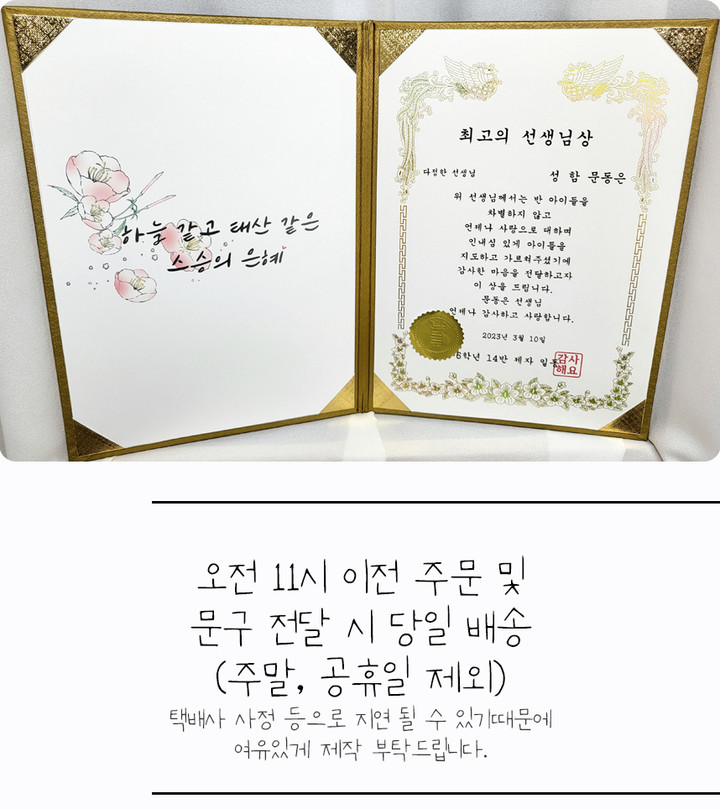 하늘 같고 태산 같은
스승의 은혜
최고의 선생님상
다정한 선생님 성 함 문동은
위 선생님께서는 반 아이들을
차별하지 않고
언제나 사랑으로 대하며
인내심 있게 아이들을
지도하고 가르쳐주셨기에
감사한 마음을 전달하고자
이 상을 드립니다.
문동은 선생님
언제나 감사하고 사랑합니다.
2023년 3월 10일
6학년 14반 제자 일동
감사
해요
오전 11시 이전 주문 및
문구 전달 시 당일 배송
(주말, 공휴일 제외)
택배사 사정 등으로 지연 될 수 있기때문에
여유있게 제작 부탁드립니다.